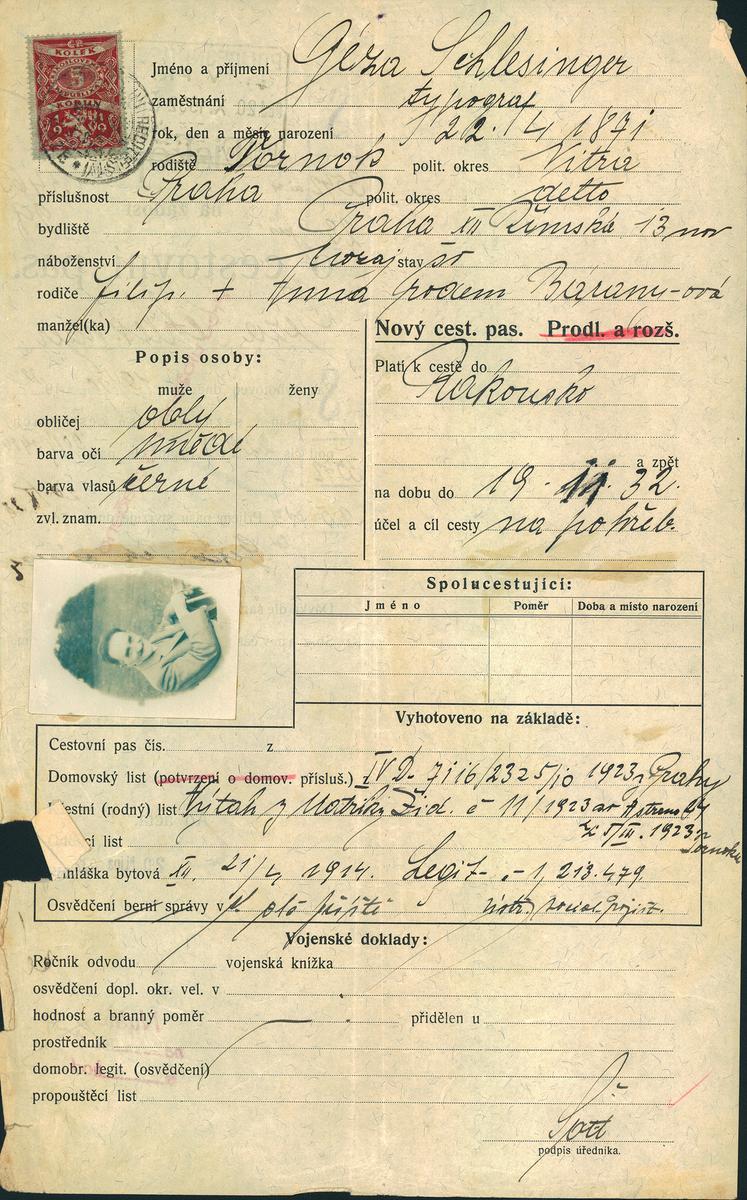 KOLEK
5
KORUN
1919
Jméno a příjmení Géza Schlesinger
zaměstnání typograf
rok, den a měsíc narození 22. 4 1871
rodiště Vornok polit. okres Nitra
příslušnost Praha polit. okres detto
bydliště Praha XII Římská 13 nov
náboženství stav
rodiče Filip. + Anna rodem Bárany-ová
manžel(ka)
Nový cest. pas. Prodl. a rozš.
Popis osoby:
muže ženy
obličej oblý
barva očí hnědé
barva vlasů černé
zvl. znam.
Platí k cestě do
Rakousko
a zpět
na dobu do 19. 11. 32.
účel a cíl cesty na potřeb.
5
Spolucestující:
Jméno Poměr Doba a místo narození
Vyhotoveno na základě:
Cestovní pas čís. z
Domovský list (potvrzení o domov. přísluš.) z IV D- 7116/2325/10 1923 z Prahy
(rodný) list Výtah z Matriky Žid. č 11/1923
5/III. 1923
list
bytová XII. 21/4 1914. Legit- 1,213.479.
Osvědčení berní správy v social. pojist.
Vojenské doklady:
Ročník odvodu vojenská knížka
osvědčení dopl. okr. vel. v
hodnost a branný poměr přidělen u
prostředník
domobr. legit. (osvědčení)
propouštěcí list
podpis úředníka.